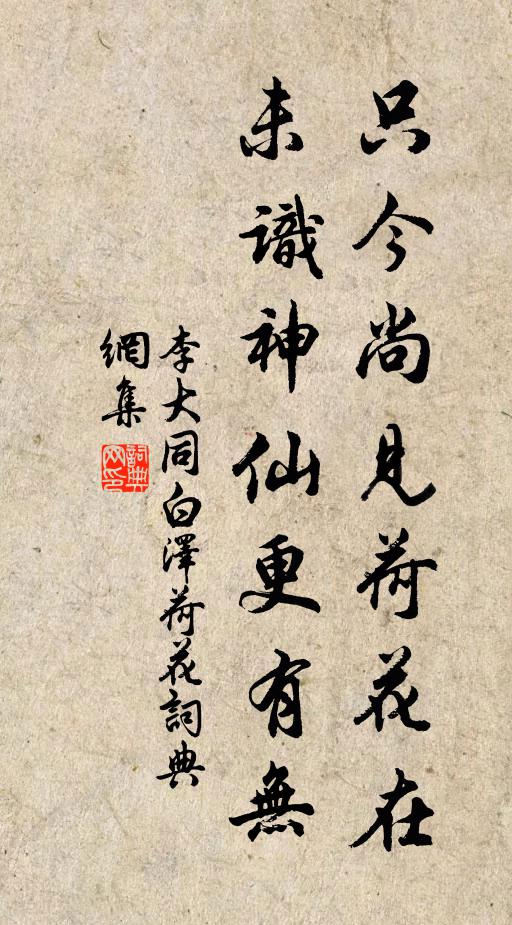 只今尚見荷花在
未識神仙更有無
李大同白澤荷花詞典
網集
詞典
网印